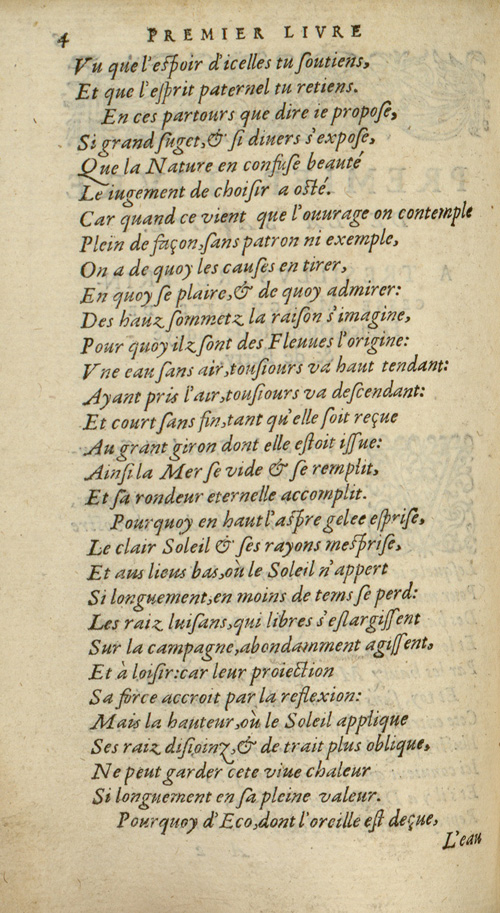 4 PREMIER LIVRE
Vu que l'eſpoir d'icelles tu ſoutiens,
Et que l'eſprit paternel tu retiens.
En ces partours que dire ie propoſe,
Si grand ſuget, & ſi diuers s'expoſe,
Que la Nature en confuſe beauté
Le iugement de choiſir a oſté.
Car quand ce vient que l'ouurage on contemple
Plein de façon, ſans patron ni exemple,
On a de quoy les cauſes en tirer,
En quoy ſe plaire, & de quoy admirer:
Des hauz ſommetz la raiſon s'imagine,
Pour quoy ilz ſont des Fleuues l'origine:
Vne eau ſans air, touſiours va haut tendant:
Ayant pris l'air, touſiours va deſcendant:
Et court ſans fin, tant qu'elle ſoit reçue
Au grant giron dont elle eſtoit iſſue:
Ainſi la Mer ſe vide & ſe remplit,
Et ſa rondeur eternelle accomplit.
Pourquoy en haut l'aſpre gelee eſpriſe,
Le clair Soleil & ſes rayons meſpriſe,
Et aus lieus bas, où le Soleil n'appert
Si longuement, en moins de tems ſe perd:
Les raiz luiſans, qui libres s'eſlargiſſent
Sur la campagne, abondamment agiſſent,
Et à loiſir: car leur proiection
Sa force accroit par la reflexion:
Mais la hauteur, où le Soleil applique
Ses raiz diſioinz, & de trait plus oblique,
Ne peut garder cete viue chaleur
Si longuement en ſa pleine valeur.
Pourquoy d'Eco, dont l'oreille eſt deçue,
L'eau